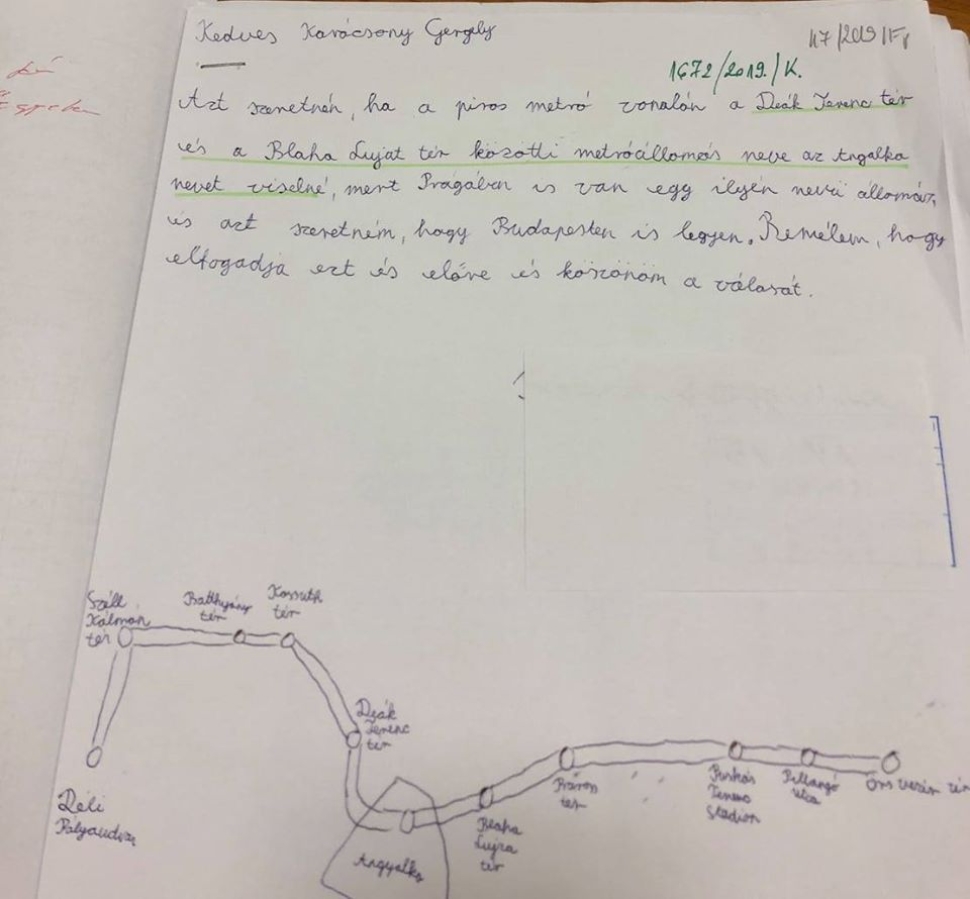 Kedves Karácsony Gergely
47/2019/Fp
1672/2019./K.
Azt szeretném, ha a piros metró vonalán a Deák Ferenc tér
és a Blaha Lujat tér közötti metróállomás neve az Angalka
nevet viselné, mert Prágában is van egy ilyen nevű állomás,
és azt szeretném, hogy Budapesten is legyen. Remélem, hogy
elfogadja ezt és előre is köszönöm a válasát.
Széll
Kálmán
tér
Batthyány
tér
Kossuth
tér
Deák
Ferenc
tér
Déli
Pályaudvar
Angyalka
Blaha
Lujza
tér
Puskás
Ferenc
Stadion
Pillangó
utca
Örs vezér tér